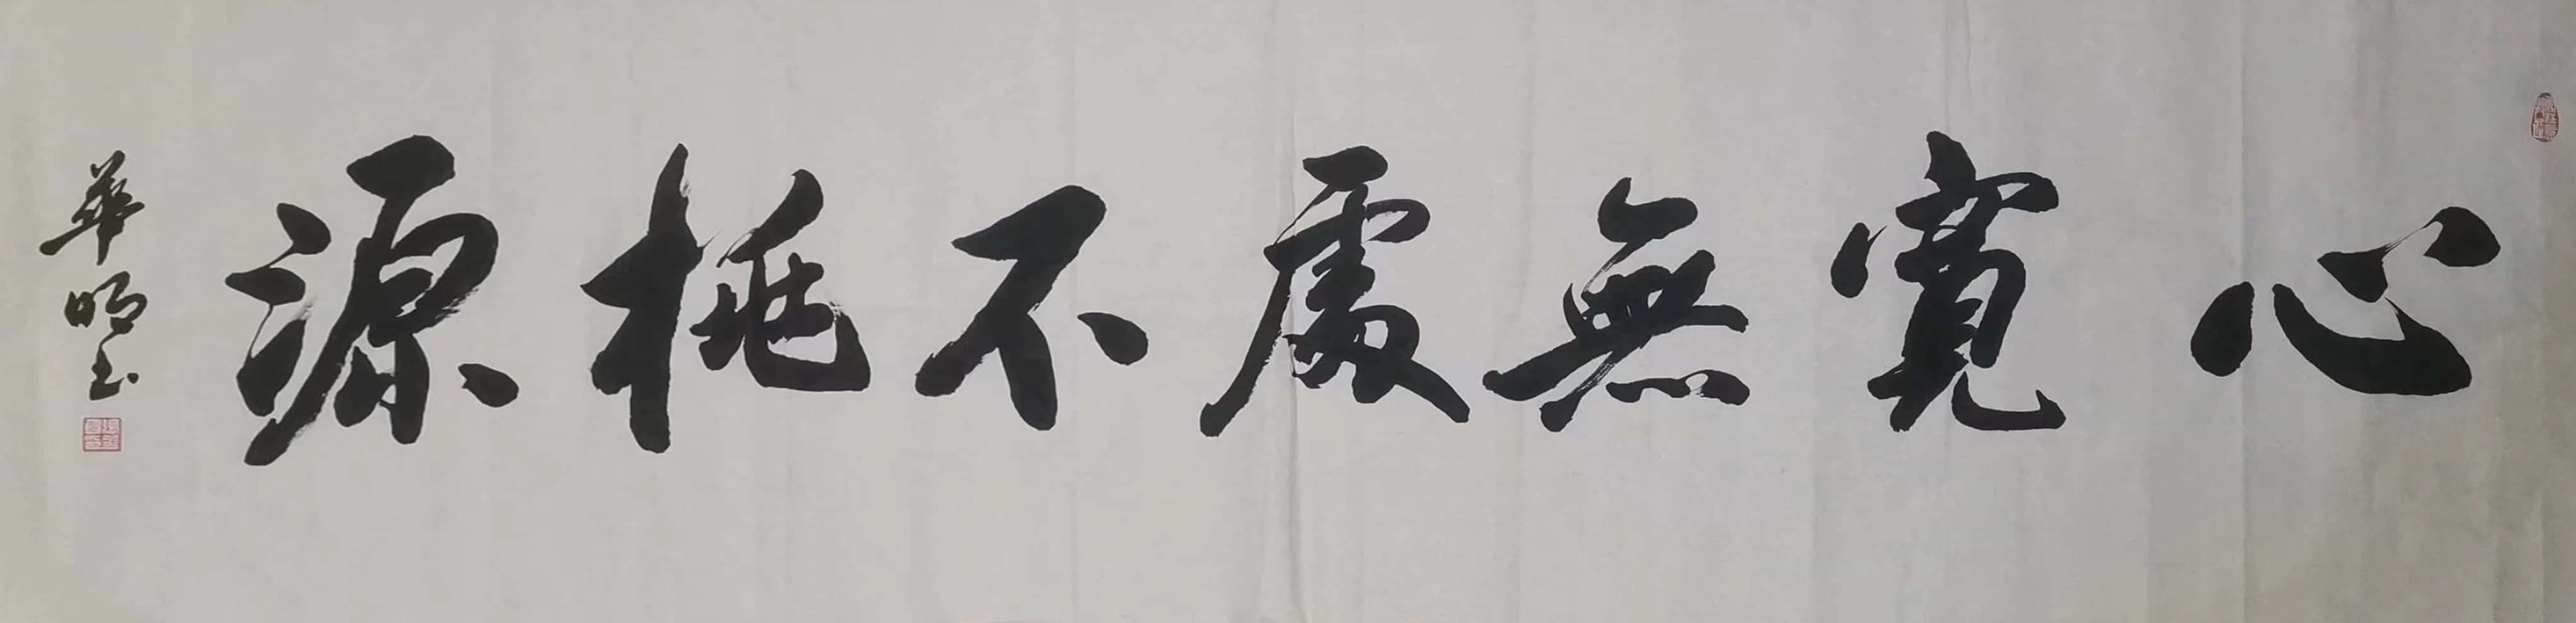 心寬無處不桃源
華明書